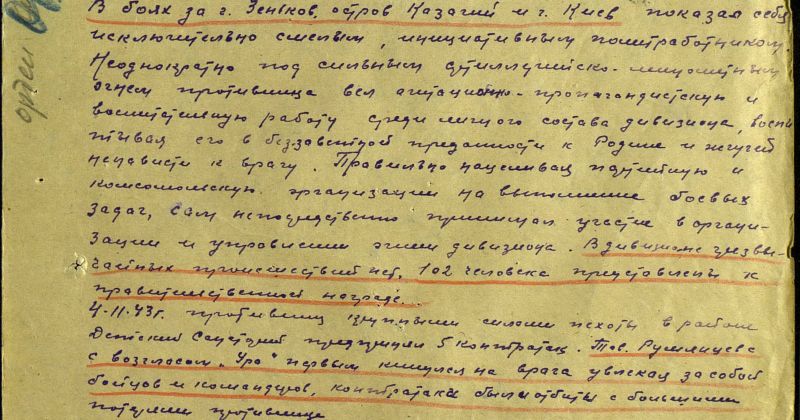 орден
В боях за г. Зеньков, остров Казачий и г. Киев показал себя
исключительно смелым, инициативным политработником.
Неоднократно под сильным артиллерийско-минометным
огнем противника вел агитационно-пропагандистскую и
воспитательную работу среди личного состава дивизиона, воспи
тывая его в беззаветной преданности к Родине и жгучей
ненависти к врагу. Правильно нацеливал партийную и
комсомольскую организации на выполнение боевых
задач, сам непосредственно принимал участие в органи-
зации и управлении огнем дивизиона. В дивизионе чрезвы-
чайных происшествий нет, 102 человека представлены к
правительственной награде.
4.11.43г. противник крупными силами пехоты в районе
Детский Санаторий предпринял 5 контратак. Тов. Румянцев
с возгласом "Ура" первым кинулся на врага увлекая за собой
бойцов и командиров, контратаки были отбиты с большими
потерями противнице